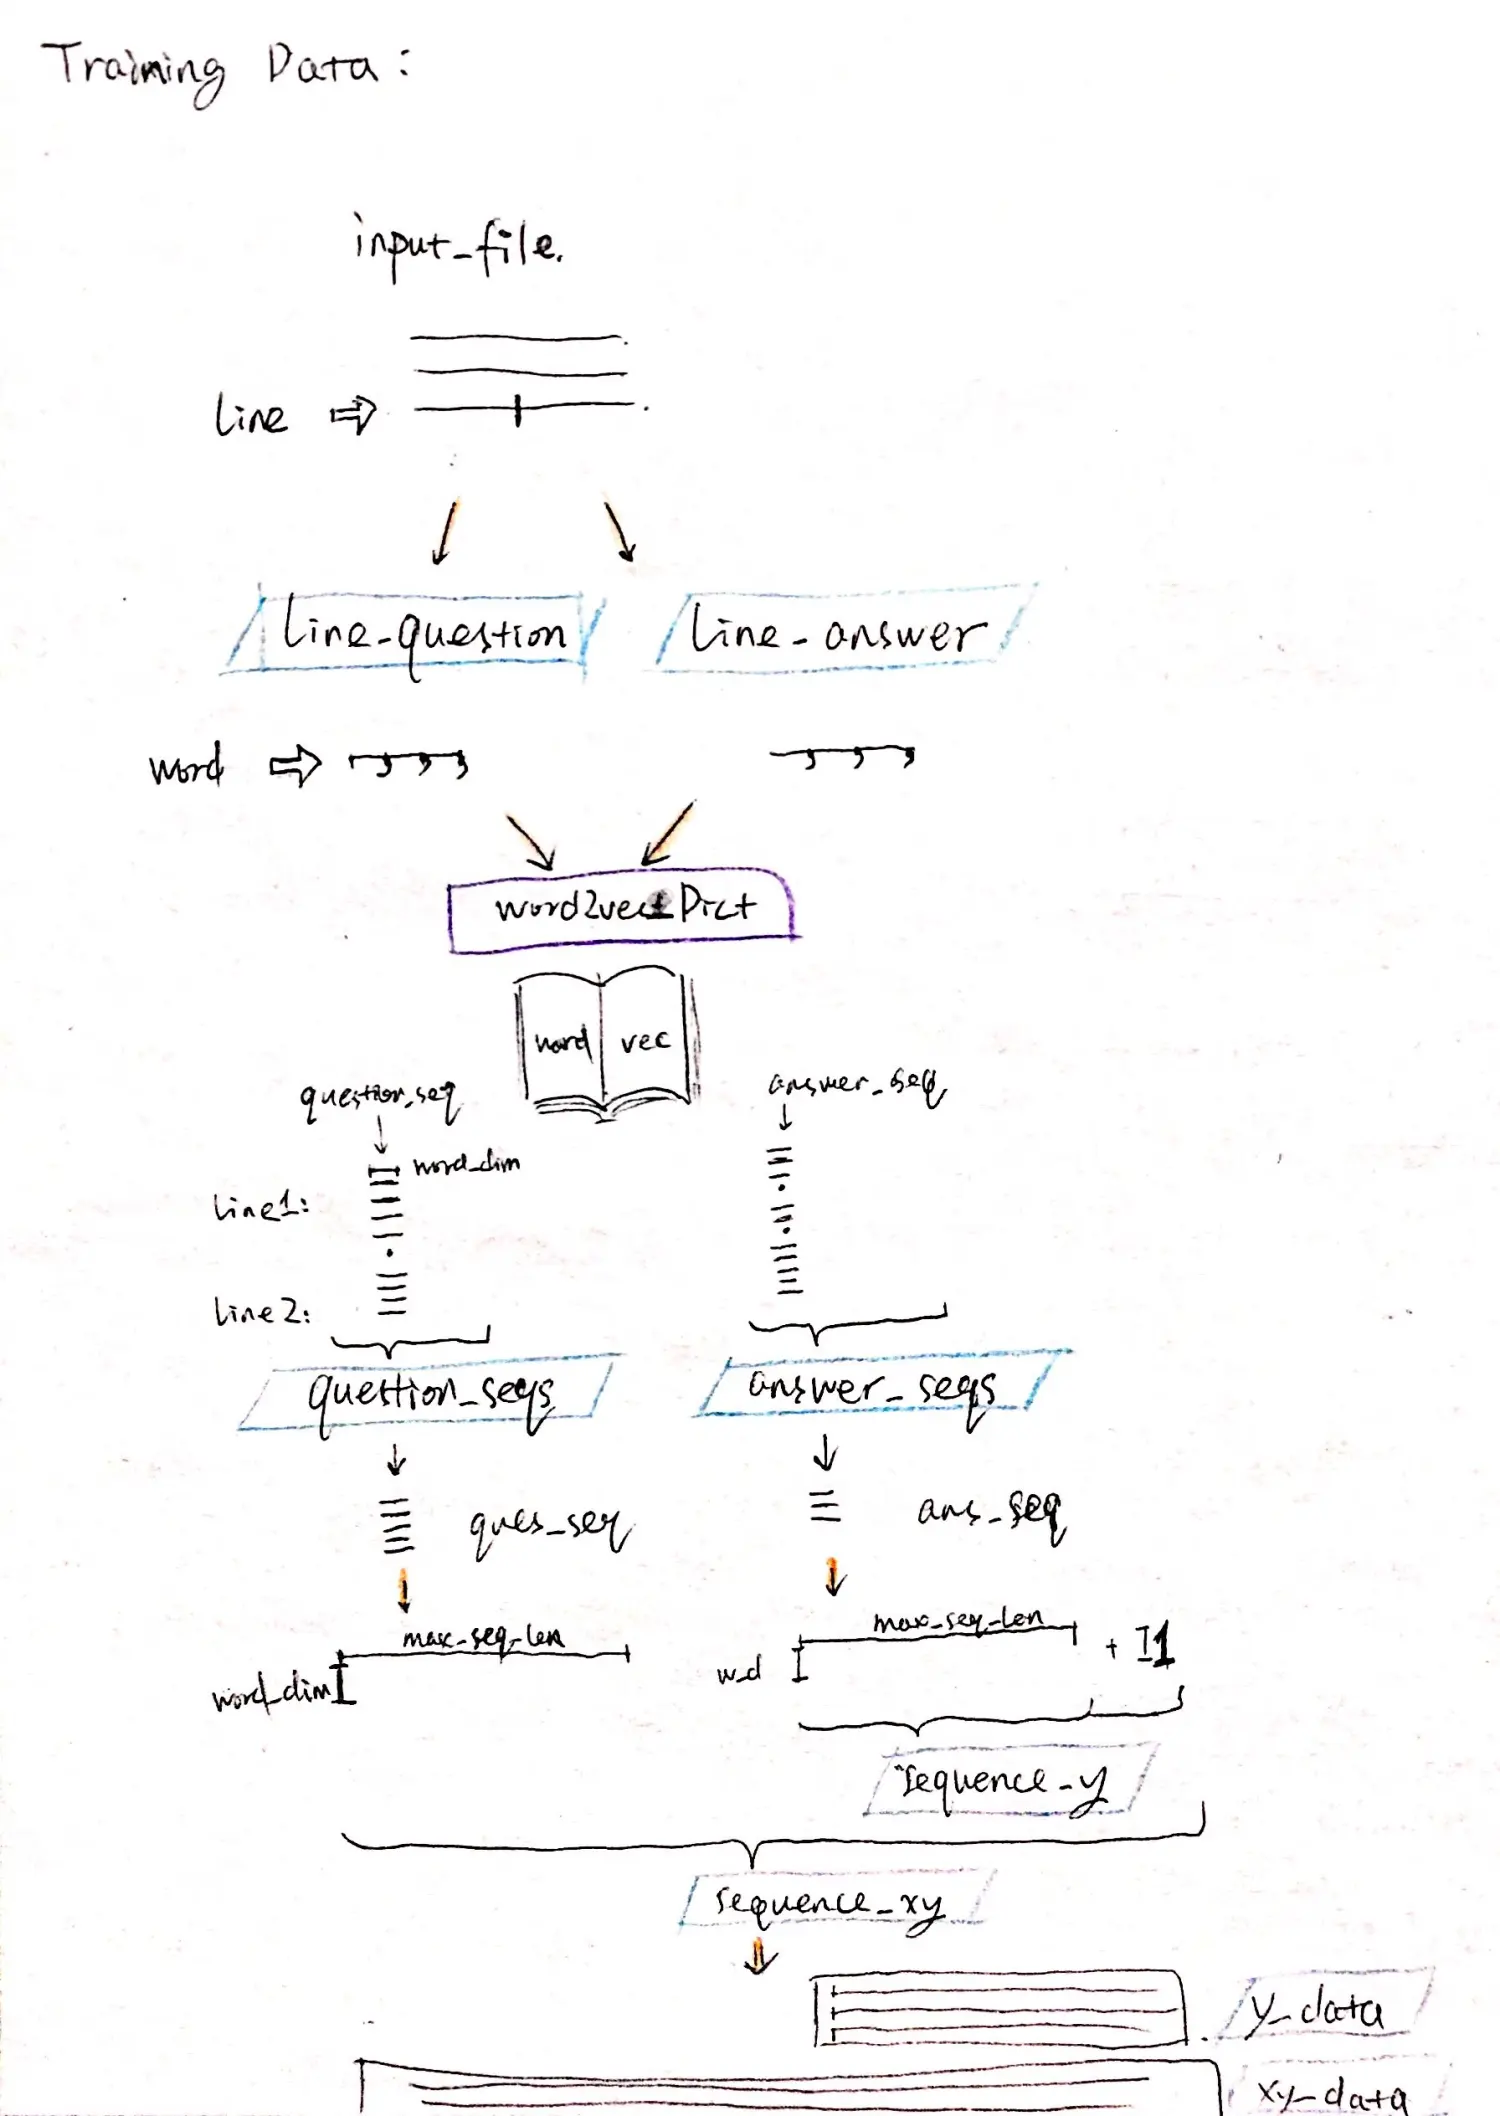 Training Data:
input_file.
line
line_question
line_answer
word
word2vect Dict
word vec
question_seq
answer_seq
word_dim
line1:
line2:
question_seqs
answer_seqs
ques_seq
ans_seq
max_seq_len
max_seq_len
word_dim
w_d
+ I1
sequence_y
sequence_xy
y_data
xy_data